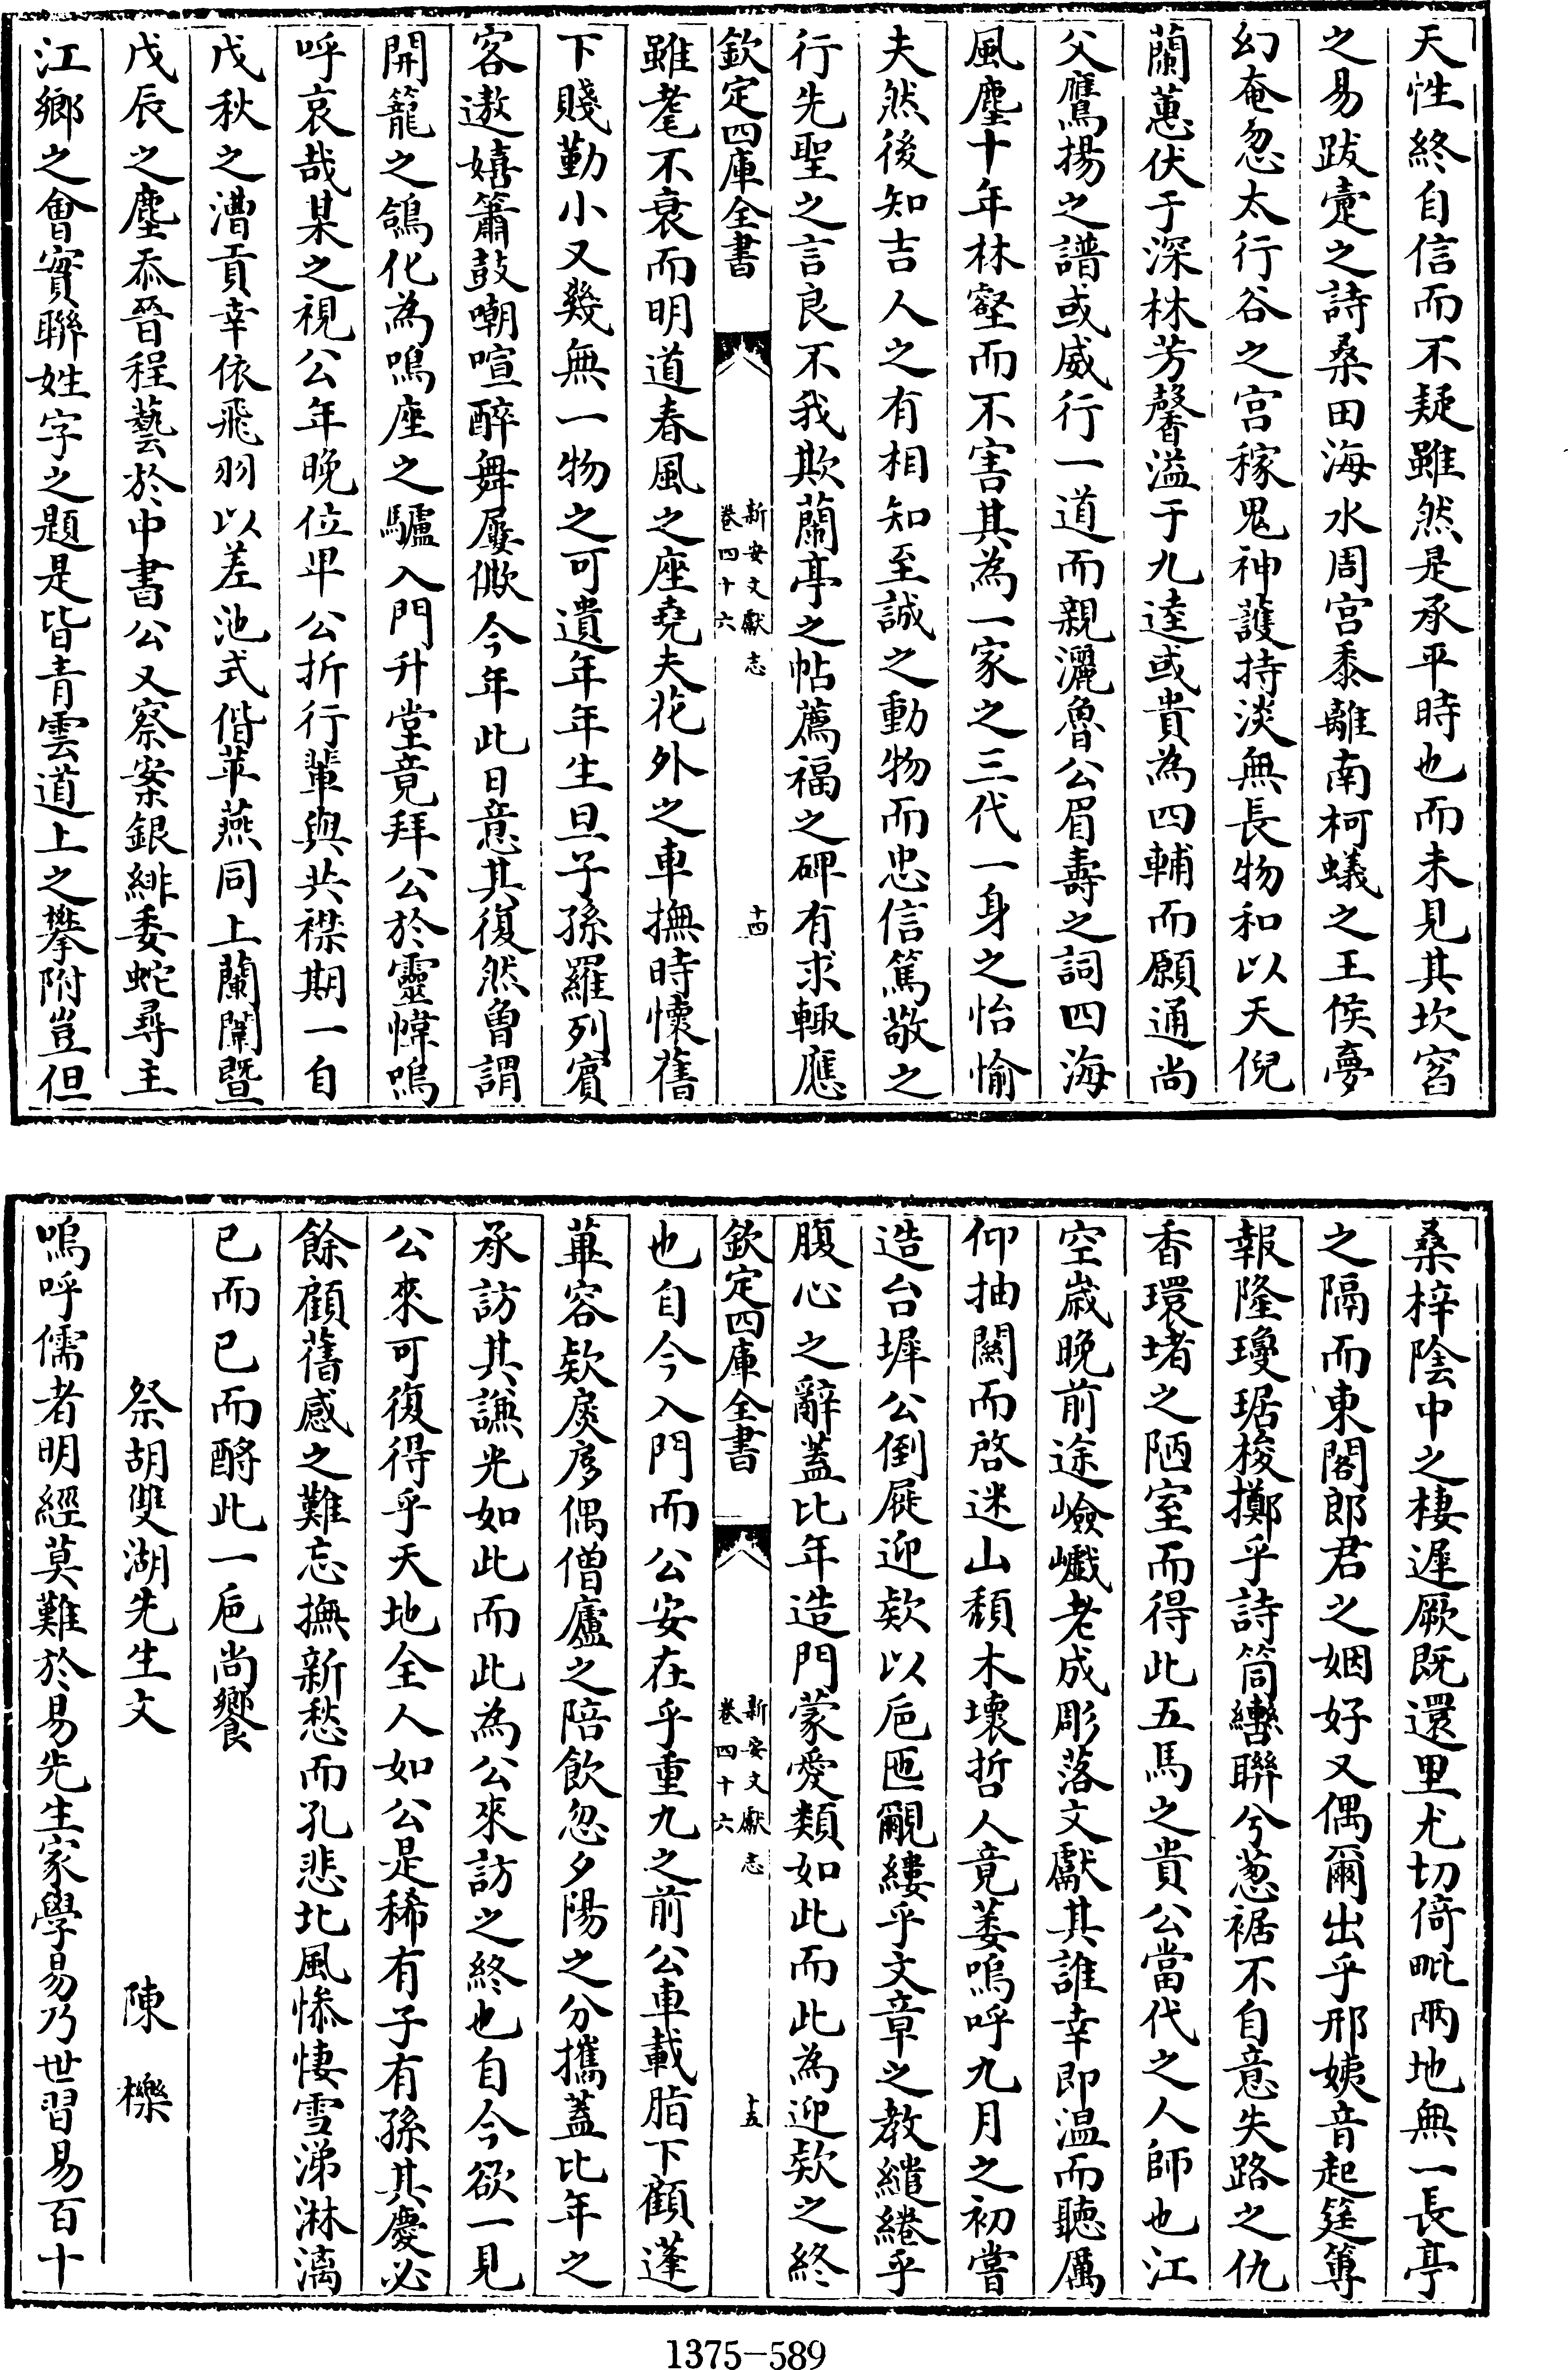 天性終自信而不疑雖然是承平時也而未見其坎窞
之易跋疐之詩桑田海水周宫黍離南柯蟻之王侯夢
幻奄忽太行谷之宫稼鬼神護持淡無長物和以天倪
蘭蕙伏于深林芳馨溢于九逵或貴為四輔而願通尚
父鷹揚之譜或威行一道而親灑魯公眉壽之詞四海
風塵十年林壑而不害其為一家之三代一身之怡愉
夫然後知吉人之有相知至誠之動物而忠信篤敬之
行先聖之言良不我欺蘭亭之帖薦福之碑有求輙應
欽定四庫全書
新安文獻志
卷四十六
十四
雖耄不衰而明道春風之座堯夫花外之車撫時懷舊
下賤勤小又幾無一物之可遺年年生旦子孫羅列賓
客遨嬉簫鼓嘲喧醉舞屢僛今年此日意其復然曾謂
開籠之鴿化為鳴座之驢入門升堂竟拜公於靈幃嗚
呼哀哉某之視公年晚位卑公折行輩與共襟期一自
戊秋之漕貢幸依飛羽以差池式偕苹燕同上蘭闈暨
戊辰之塵忝晉程藝於中書公又察案銀緋委蛇尋主
江鄉之會實聯姓字之題是皆青雲道上之攀附豈但
桑梓陰中之棲遲厥既還里尤切倚毗兩地無一長亭
之隔而東閣郎君之姻好又偶爾出乎邢姨音起筳篿
報隆瓊琚梭擲乎詩筒轡聯兮葱裾不自意失路之仇
香環堵之陋室而得此五馬之貴公當代之人師也江
空歲晚前途嶮巇老成彫落文獻其誰幸即温而聽厲
仰抽關而啓迷山頹木壞哲人竟萎嗚呼九月之初嘗
造台墀公倒屣迎欵以巵匜覼縷乎文章之教繾綣乎
腹心之辭蓋比年造門蒙愛類如此而此為迎欵之終
欽定四庫全書
新安文獻志
卷四十六
十五
也自今入門而公安在乎重九之前公車載脂下顧蓬
蓽容欵扊扅偶僧廬之陪飲忽夕陽之分攜蓋比年之
承訪其謙光如此而此為公來訪之終也自今欲一見
公來可復得乎天地全人如公是稀有子有孫其慶必
餘顧舊感之難忘撫新愁而孔悲北風慘悽雪涕淋漓
已而已而酹此一巵尚饗
祭胡雙湖先生文　陳櫟
嗚呼儒者明經莫難於易先生家學易乃世習易百十
1375-589